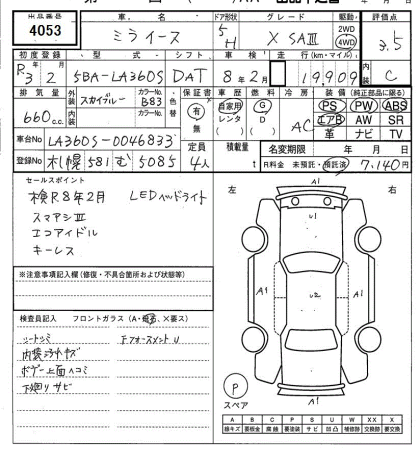 出品番号 車名 ドア形状 グレード 駆動 評価点
4053 ミライース 5 H X SAⅢ 2WD 4WD 3.5
初度登録 型式 シフト 車検 走行(km・マイル) 内装
R3年2月 5BA-LA360S DAT 8年2月 19909 C
排気量 外装 スカイブルー カラーNo. B83 色替 保証書 車歴 燃料 冷房 装備(純正部品に限る)
660c.c. 内装 カラーNo. 有 無 自家用 レンタ G D AC PS PW ABS
エアB AW SR
革 ナビ TV
車台No LA360S-0046833 定員 積載量 名変期限 年 月 日
登録No 札幌 581 む 5085 4人 t R料金 未預託・預託済 7,140円
セールスポイント
検R8年2月 LEDヘッドライト
スマアシⅢ
エコアイドル
キーレス
※注意事項記入欄(修復・不具合箇所および状態等)
検査員記入 フロントガラス(A・飛石、×要ス)
シートシミ
内装コゲ穴キズ
ボデー上面ヘコミ
下廻りサビ
左 右
A1
U1
A1 U2 A1
A1
P
スペア
A B C P S U W X XX
線キズ 要板金 腐蝕 要塗装 サビ 凹凸 補修跡 要交換 交換跡